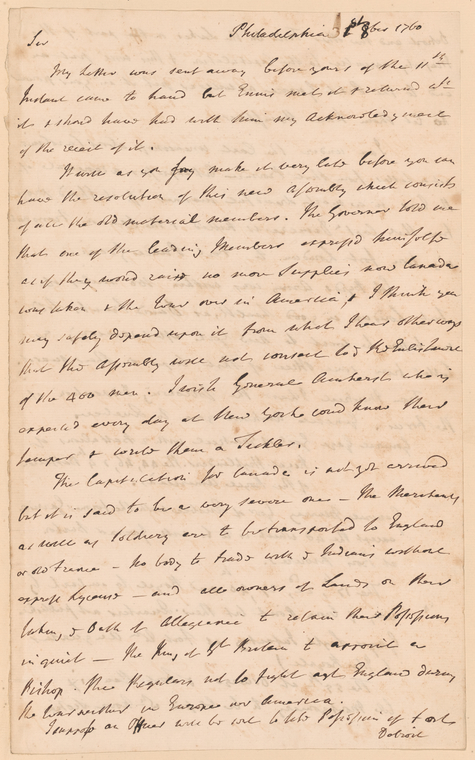 Philadelphia 8ber 1760
Sir
My Letter was sent away before yours of the 11th
Instant came to hand but Ennis met it & returned wth
it & shoud have had with him my Acknowledgment
of the receit of it.
It will as you say make it very late before you can
have the resolution of this new Assembly which consists
of all the old material members. The Governor told me
that one of the leading Members express'd himselfe
as if they woud raise no more Supplies now Canada
was taken & the War over in America, & I think you
may safely depend upon it from what I hear otherways
that the Assembly will not consent to the ReEnlistment
of the 400 men. I wish General Amherst who is
expected every day at New Yorke coud know their
temper & write them a Tickler.
The Capitulation for Canada is not yet arrived
but it is said to be a very severe one – The Merchants
as well as Soldiery are to be transported to England
or old France – No body to trade with Indians without
express Lycense – and all owners of Lands on their
taking Oath of Allegiance to retain their Possessions
in quiet – The King of Gt Britain to appoint a
Bishop. The Regulars not to fight agt England during
the War neither in Europe nor America.
I suppose an Officer will be sent to take Possession of Fort
Detroit